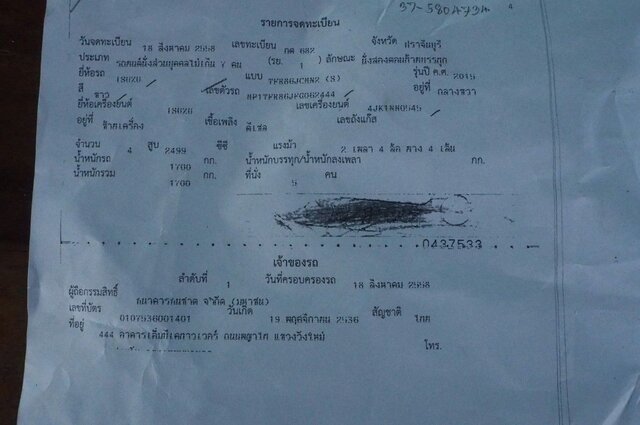 37-580473A
4
รายการจดทะเบียน
วันจดทะเบียน 18 สิงหาคม 2558 เลขทะเบียน กต 682 จังหวัด ปราจีนบุรี
ประเภท รถยนต์นั่งส่วนบุคคลไม่เกิน 7 คน (รย. 1 ) ลักษณะ นั่งสองตอนท้ายบรรทุก
ยี่ห้อรถ ISUZU แบบ รุ่นปี ค.ศ. 2015
สี ขาว เลขตัวรถ อยู่ที่ กลางขวา
ยี่ห้อเครื่องยนต์ ISUZU เลขเครื่องยนต์
อยู่ที่ ซ้ายเครื่อง เชื้อเพลิง ดีเซล เลขถังแก๊ส
จำนวน 4 สูบ 2499 ซีซี แรงม้า 2 เพลา 4 ล้อ ยาง 4 เส้น
น้ำหนักรถ 1700 กก. น้ำหนักบรรทุก/น้ำหนักลงเพลา กก.
น้ำหนักรวม 1700 กก. ที่นั่ง 5 คน
0437533
เจ้าของรถ
ลำดับที่ 1 วันที่ครอบครองรถ 18 สิงหาคม 2558
ผู้ถือกรรมสิทธิ์ ธนาคารธนชาต จำกัด (มหาชน)
เลขที่บัตร 0107536001401 วันเกิด 19 พฤศจิกายน 2536 สัญชาติ ไทย
ที่อยู่ 444 อาคารเอ็มบีเคทาวเวอร์ ถนนพญาไท แขวงวังใหม่
โทร.